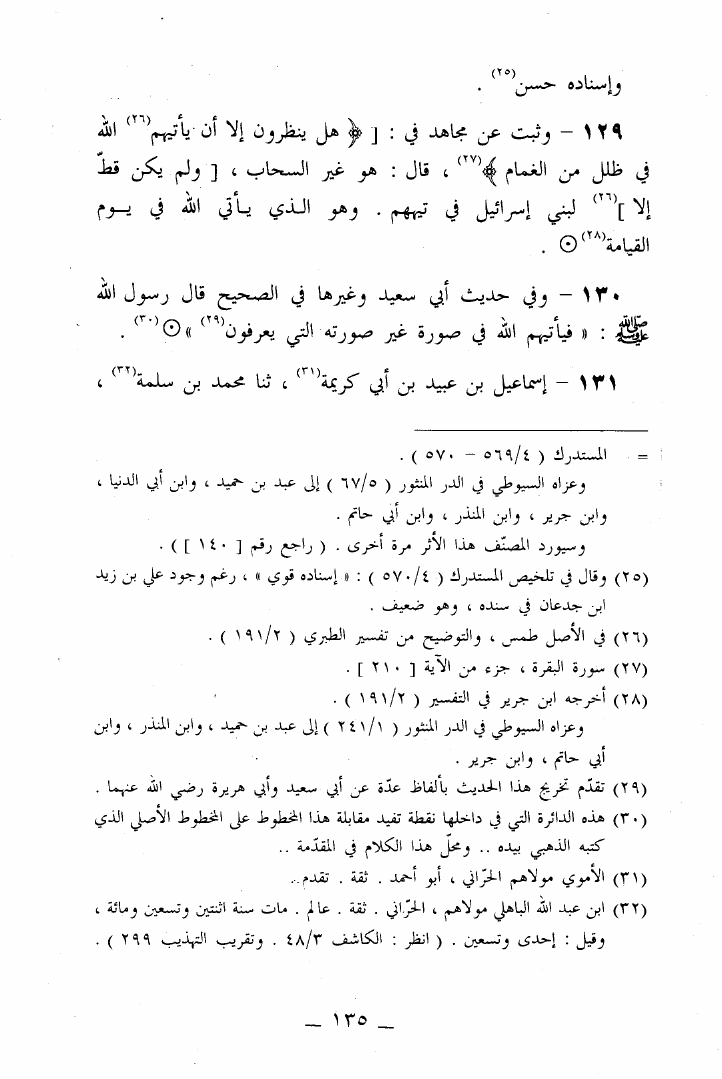 وإسناده حسن(٢٥) .
١٢٩ – وثبت عن مجاهد في : [ ﴿ هل ينظرون إلا أن يأتيهم(٢٦) الله
في ظلل من الغمام ﴾(٢٧) ، قال : هو غير السحاب ، [ ولم يكن قطّ
إلا ](٢٦) لبني إسرائيل في تيههم . وهو الـذي يـأتي الله في يـوم
القيامة(٢٨)⊙ .
١٣٠ – وفي حديث أبي سعيد وغيرها في الصحيح قال رسول الله
ﷺ : « فيأتيهم الله في صورة غير صورته التي يعرفون(٢٩) »⊙(٣٠) .
١٣١ – إسماعيل بن عبيد بن أبي كريمة(٣١) ، ثنا محمد بن سلمة(٣٢) ،
= المستدرك ( ٥٦٩/٤ – ٥٧٠ ) .
وعزاه السيوطي في الدر المنثور ( ٦٧/٥ ) إلى عبد بن حميد ، وابن أبي الدنيا ،
وابن جرير ، وابن المنذر ، وابن أبي حاتم .
وسيورد المصنّف هذا الأثر مرة أخرى . ( راجع رقم [ ١٤٠ ] ) .
(٢٥) وقال في تلخيص المستدرك ( ٥٧٠/٤ ) : « إسناده قوي » ، رغم وجود علي بن زيد
ابن جدعان في سنده ، وهو ضعيف .
(٢٦) في الأصل طمس ، والتوضيح من تفسير الطبري ( ١٩١/٢ ) .
(٢٧) سورة البقرة ، جزء من الآية [ ٢١٠ ] .
(٢٨) أخرجه ابن جرير في التفسير ( ١٩١/٢ ) .
وعزاه السيوطي في الدر المنثور ( ٢٤١/١ ) إلى عبد بن حميد ، وابن المنذر ، وابن
أبي حاتم ، وابن جرير .
(٢٩) تقدّم تخريج هذا الحديث بألفاظ عدّة عن أبي سعيد وأبي هريرة رضي الله عنهما .
(٣٠) هذه الدائرة التي في داخلها نقطة تفيد مقابلة هذا المخطوط على المخطوط الأصلي الذي
كتبه الذهبي بيده .. ومحلّ هذا الكلام في المقدّمة ..
(٣١) الأموي مولاهم الحرّاني ، أبو أحمد . ثقة . تقدم..
(٣٢) ابن عبد الله الباهلي مولاهم ، الحرّاني . ثقة . عالم . مات سنة اثنتين وتسعين ومائة ،
وقيل : إحدى وتسعين . ( انظر : الكاشف ٤٨/٣ . وتقريب التهذيب ٢٩٩ ) .
– ١٣٥ –